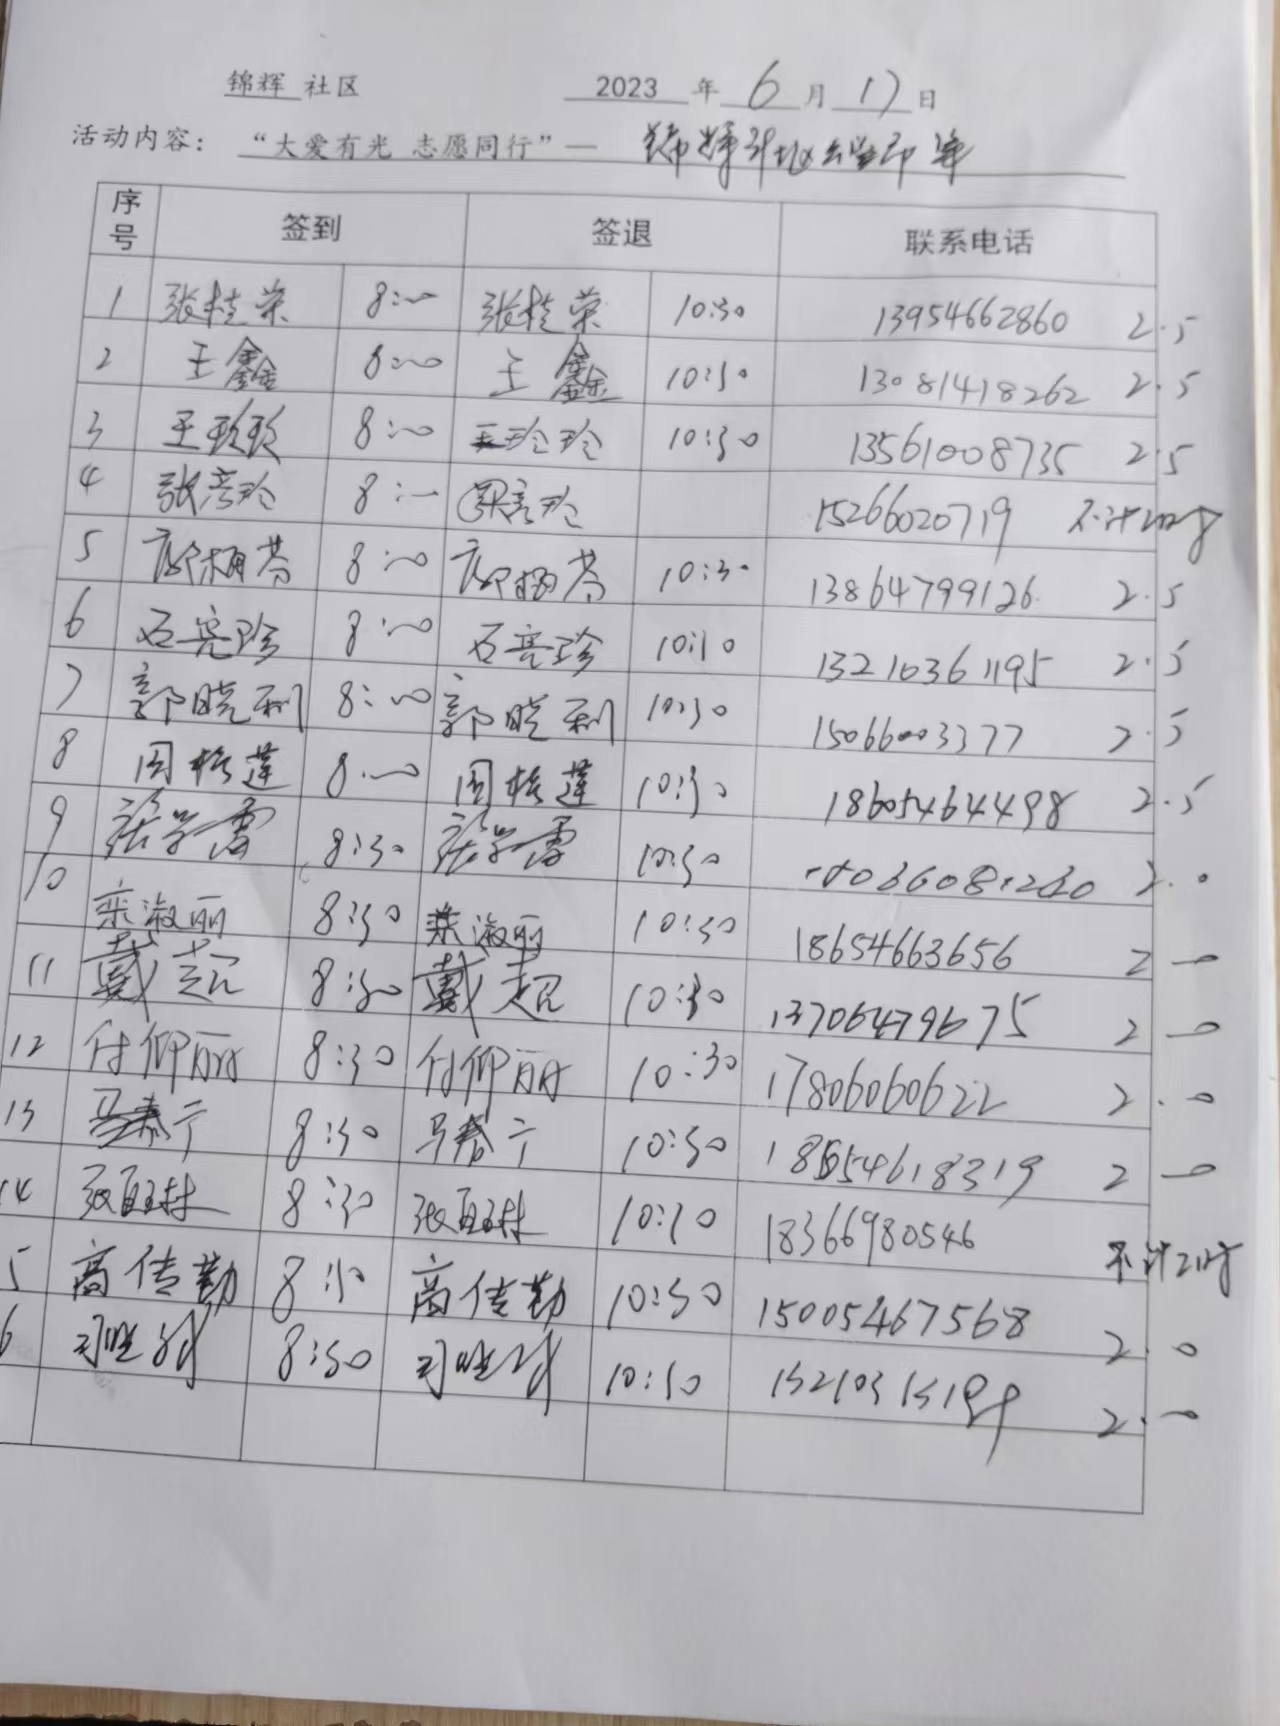 锦辉 社区 2023 年 6 月 17 日
活动内容： “大爱有光 志愿同行”— 锦辉
序号 签到 签退 联系电话
1 张桂荣 8:00 张桂荣 10:30 13954662860 2.5
2 王鑫 8:00 王鑫 10:30 13081418262 2.5
3 王玲玲 8:00 王玲玲 10:30 13561008735 2.5
4 张彦玲 8:00 15266020719 不计工时
5 8:00 10:30 13864799126 2.5
6 石亮珍 8:00 石亮珍 10:30 13210361195 2.5
7 郭晓利 8:00 郭晓利 10:30 15066003377 2.5
8 周桂莲 8:00 周桂莲 10:30 18605464498 2.5
9 张学雷 8:30 张学雷 10:30 2.0
10 栾淑丽 8:30 栾淑丽 10:30 18654663656 2.0
11 戴超 8:30 戴超 10:30 13706479675 2.0
12 付仰丽 8:30 付仰丽 10:30 17806060622 2.0
13 8:30 10:30 2.0
14 8:30 10:30 18366980546 不计工时
5 高传勤 8:30 高传勤 10:30 15005467568 2.0
6 8:30 10:30 2.0